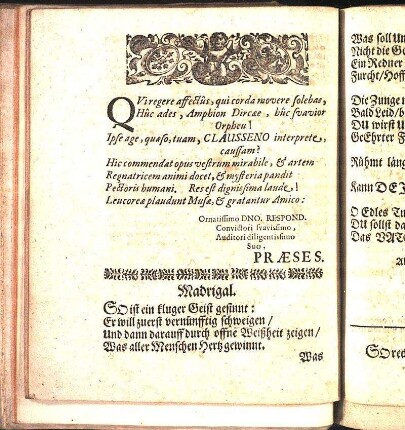 QVi regere affectûs, qui corda movere solebas,
Hûc ades, Amphion Dircæe, hûc svavior
Orpheu!
Ipse age, quæso, tuam, CLAUSSENO interprete,
caussam?
Hic commendat opus vestrum mirabile, & artem
Regnatricem animi docet, & mysteria pandit
Pectoris humani. Res est dignissima laude!
Leucoreæ plaudunt Musæ, & gratantur Amico:
Ornatissimo DNO. RESPOND.
Convictori svavissimo,
Auditori diligentissimo
Suo,
PRÆSES.
Madrigal.
SO ist ein kluger Geist gesinnt:
Er will zuerst vernünfftig schweigen/
Und dann darauff durch offne Weißheit zeigen/
Was aller Menschen Hertz gewinnt.
Was
Was soll Un
Nicht die Ge
Ein Redner
Furcht/Hoff
Die Zunge
Bald Leid/
DU wirst U
GeEhrter F
Rühmt läng
Kann DEI
O Edles Tu
DU sollst da
Das VAT
SO rec